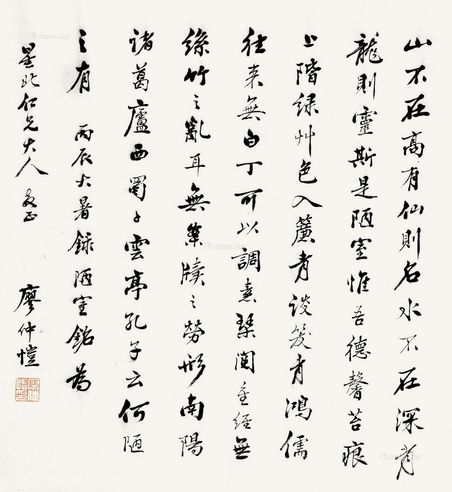 山不在高有仙則名水不在深有
龍則靈斯是陋室惟吾德馨苔痕
上階緑艸色入簾青談笑有鴻儒
往来無白丁可以調素琴閱金經無
絲竹之亂耳無案牘之勞形南陽
諸葛廬西蜀子雲亭孔子云何陋
之有 丙辰大暑録陋室銘為
星北仁兄大人 教正
廖仲愷